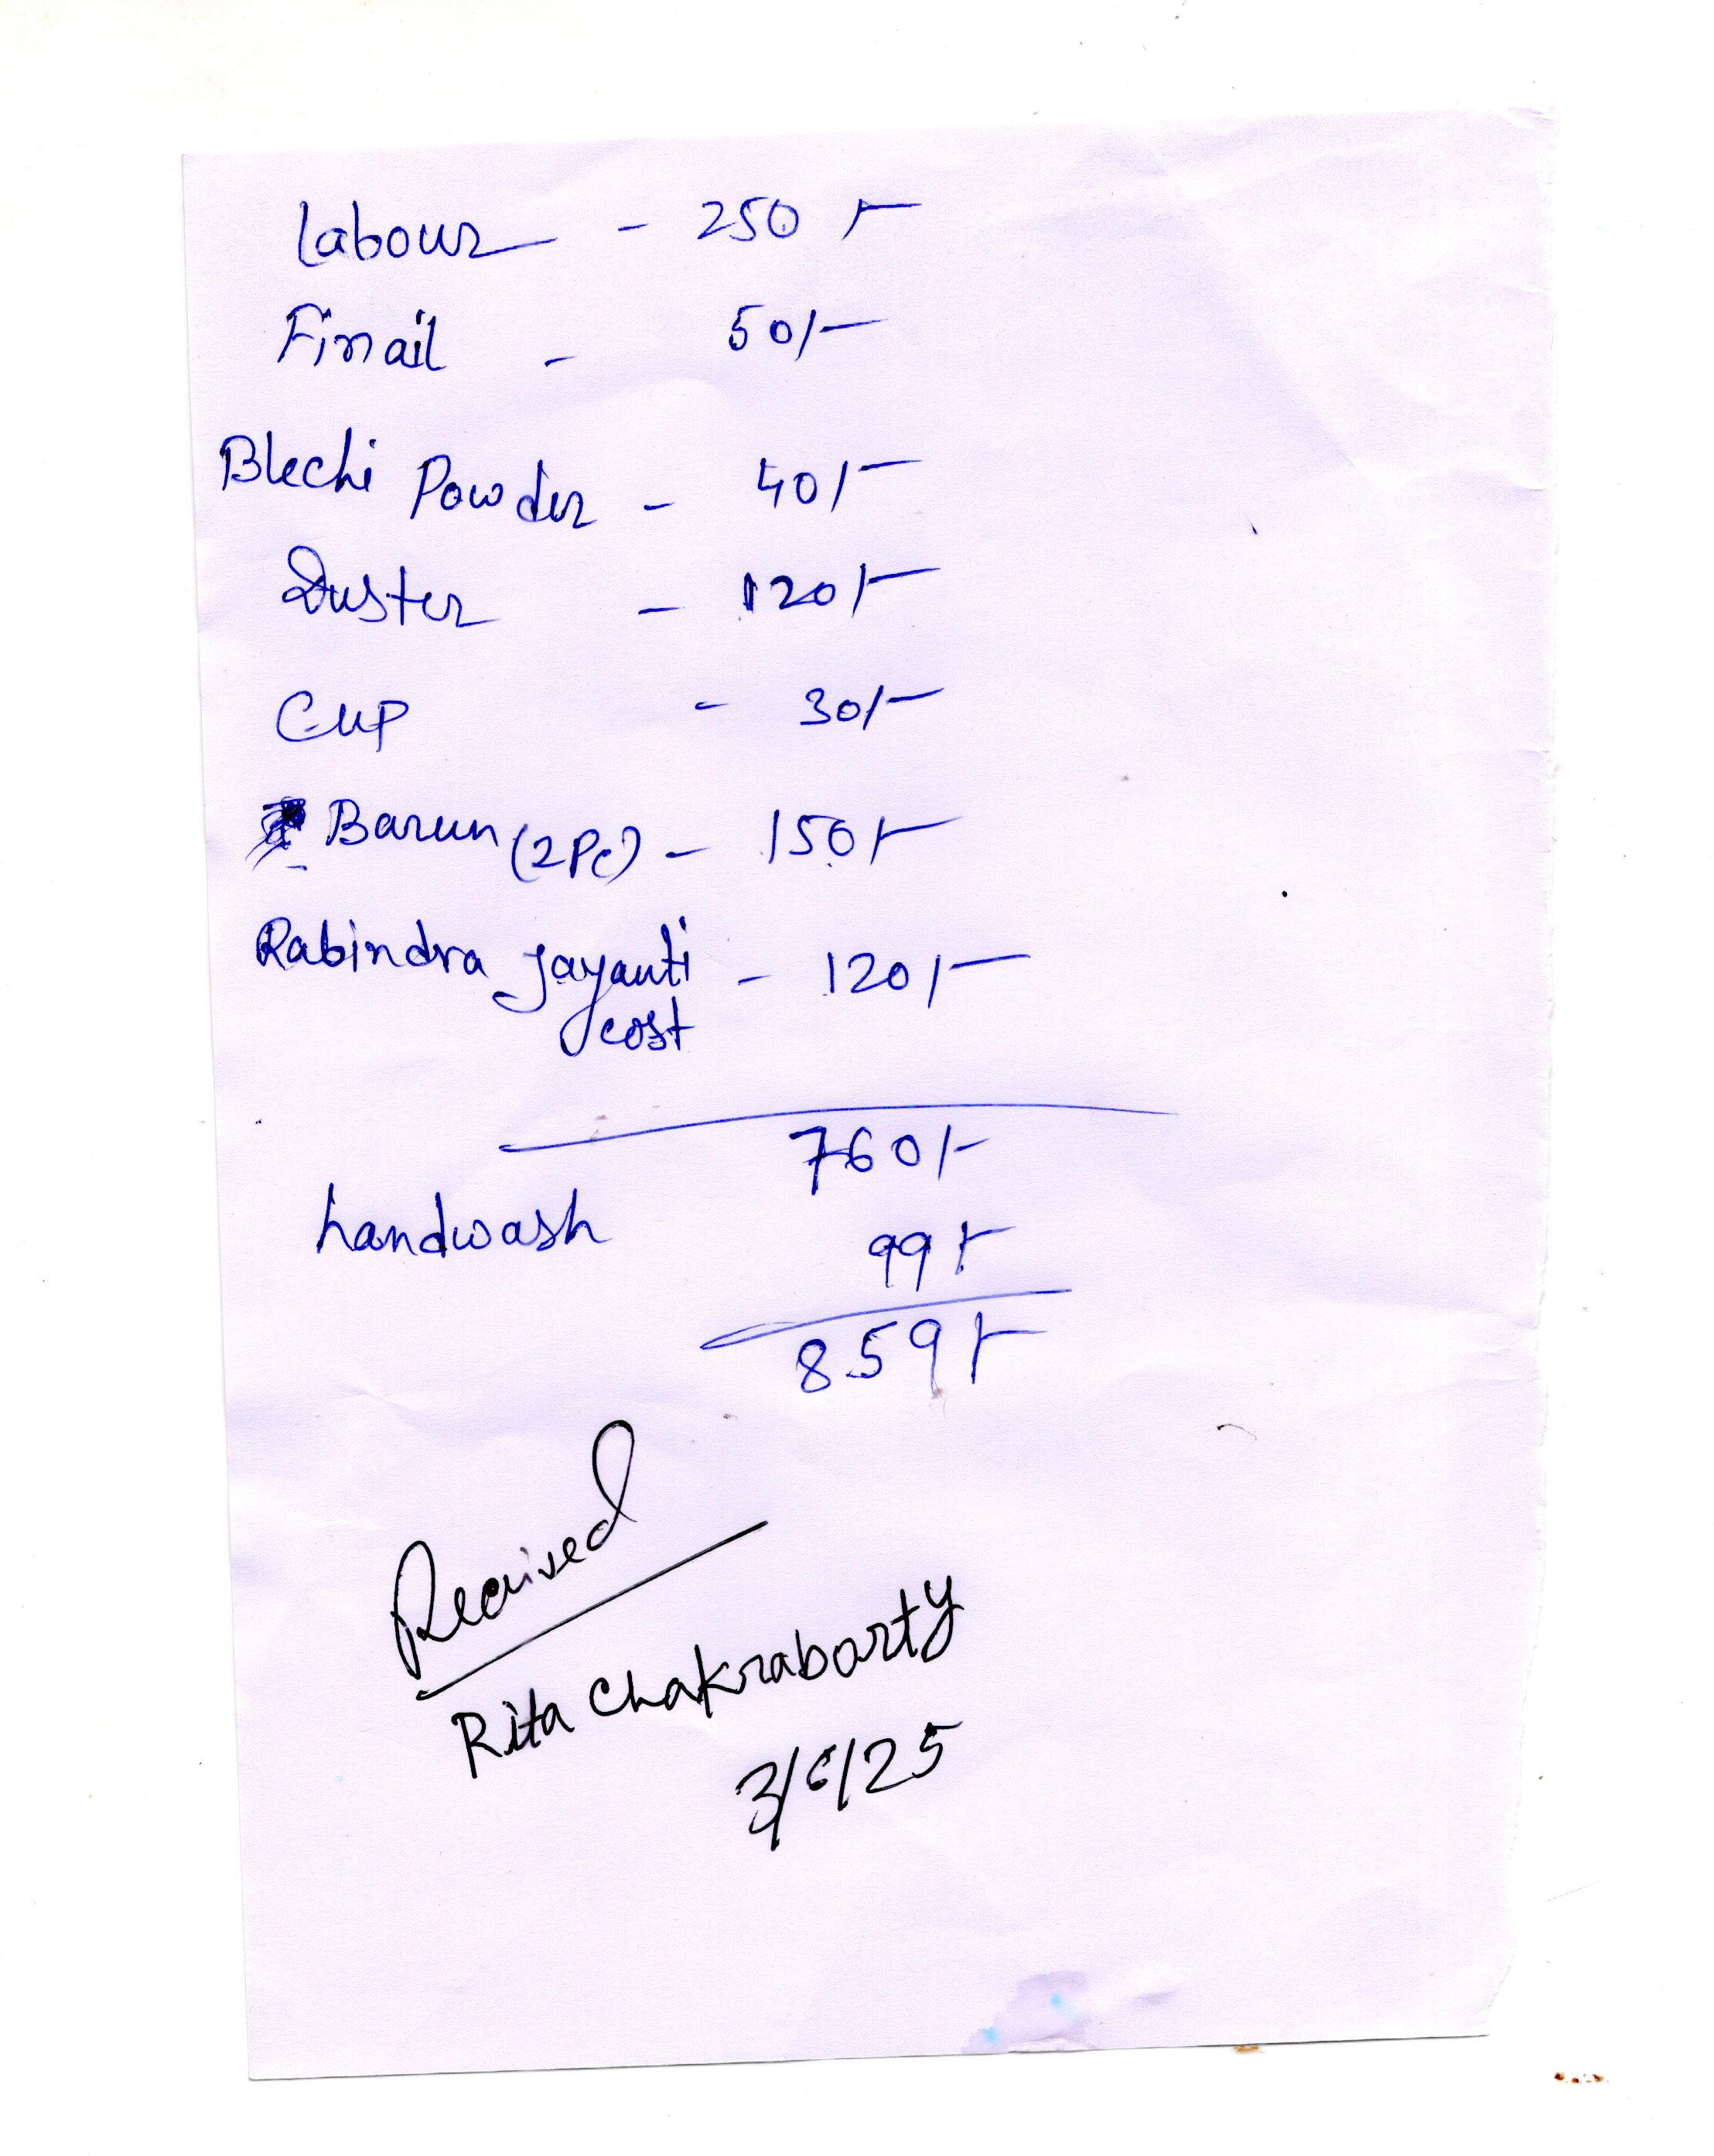 Labour - 250/-
Finail - 50/-
Blechi Powder - 40/-
Duster - 120/-
Cup - 30/-
Barun (2Pc) - 150/-
Rabindra Jayanti - 120/-
cost
760/-
handwash 99/-
859/-
Received
Rita Chakraborty
3/6/25